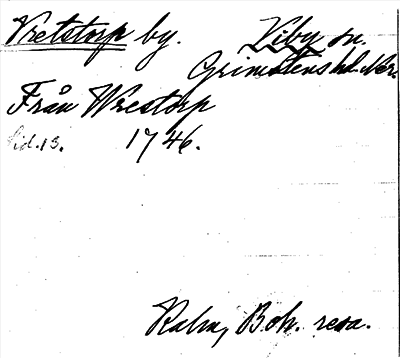 Vretstorp by. Viby sn.
Grimstens hd. När.
Från Wrestorp
Sid. 13. 1746.
Kalm, Boh. resa.